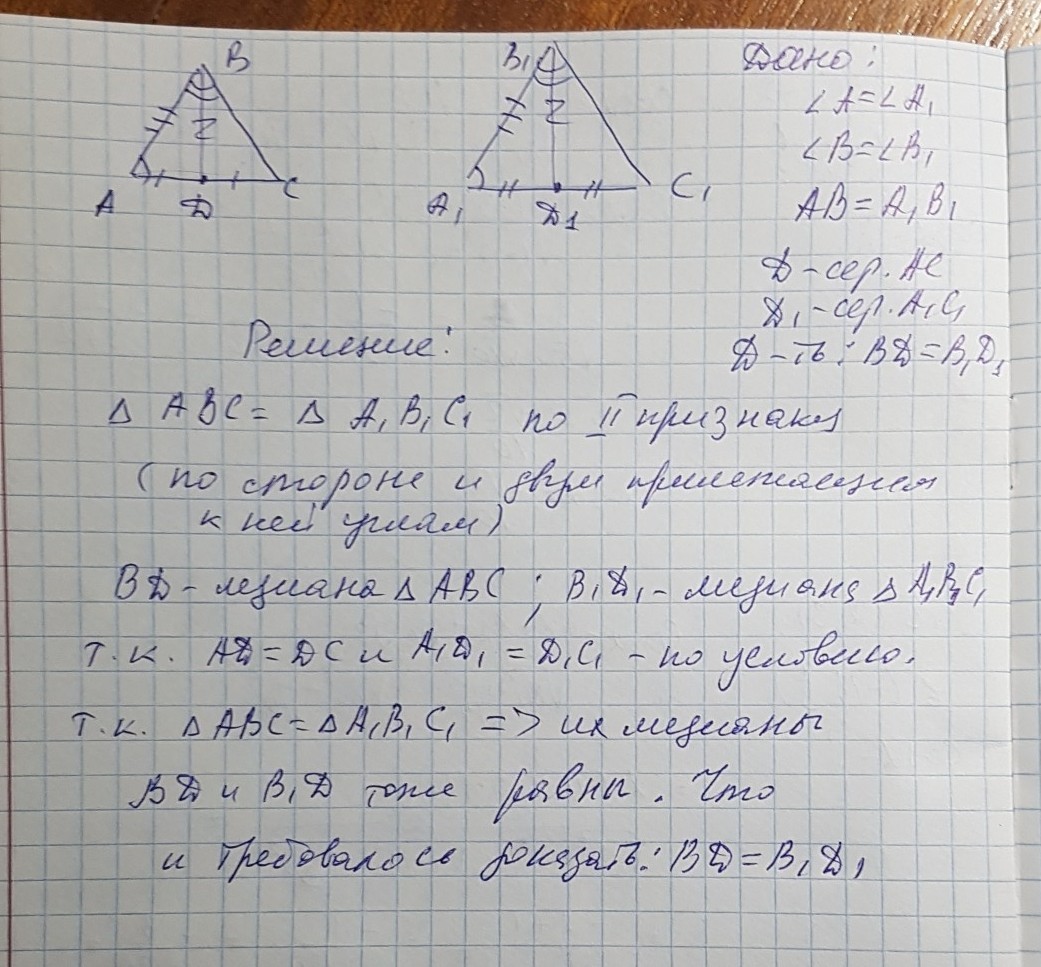 B
A
Д
C
B₁
A₁
Д₁
C₁
Дано:
∠A=∠A₁
∠B=∠B₁
AB=A₁B₁
Д-сер. AC
Д₁-сер. A₁C₁
Д-ть: BД=B₁Д₁
Решение:
Δ ABC = Δ A₁B₁C₁ по II признаку
(по стороне и двум прилежащим
к ней углам)
BД-медиана Δ ABC; B₁Д₁-медиана Δ A₁B₁C₁
т.к. AД=ДC и A₁Д₁=Д₁C₁ - по условию.
т.к. Δ ABC=Δ A₁B₁C₁ => их медианы
BД и B₁Д тоже равны. Что
и требовалось доказать: BД=B₁Д₁